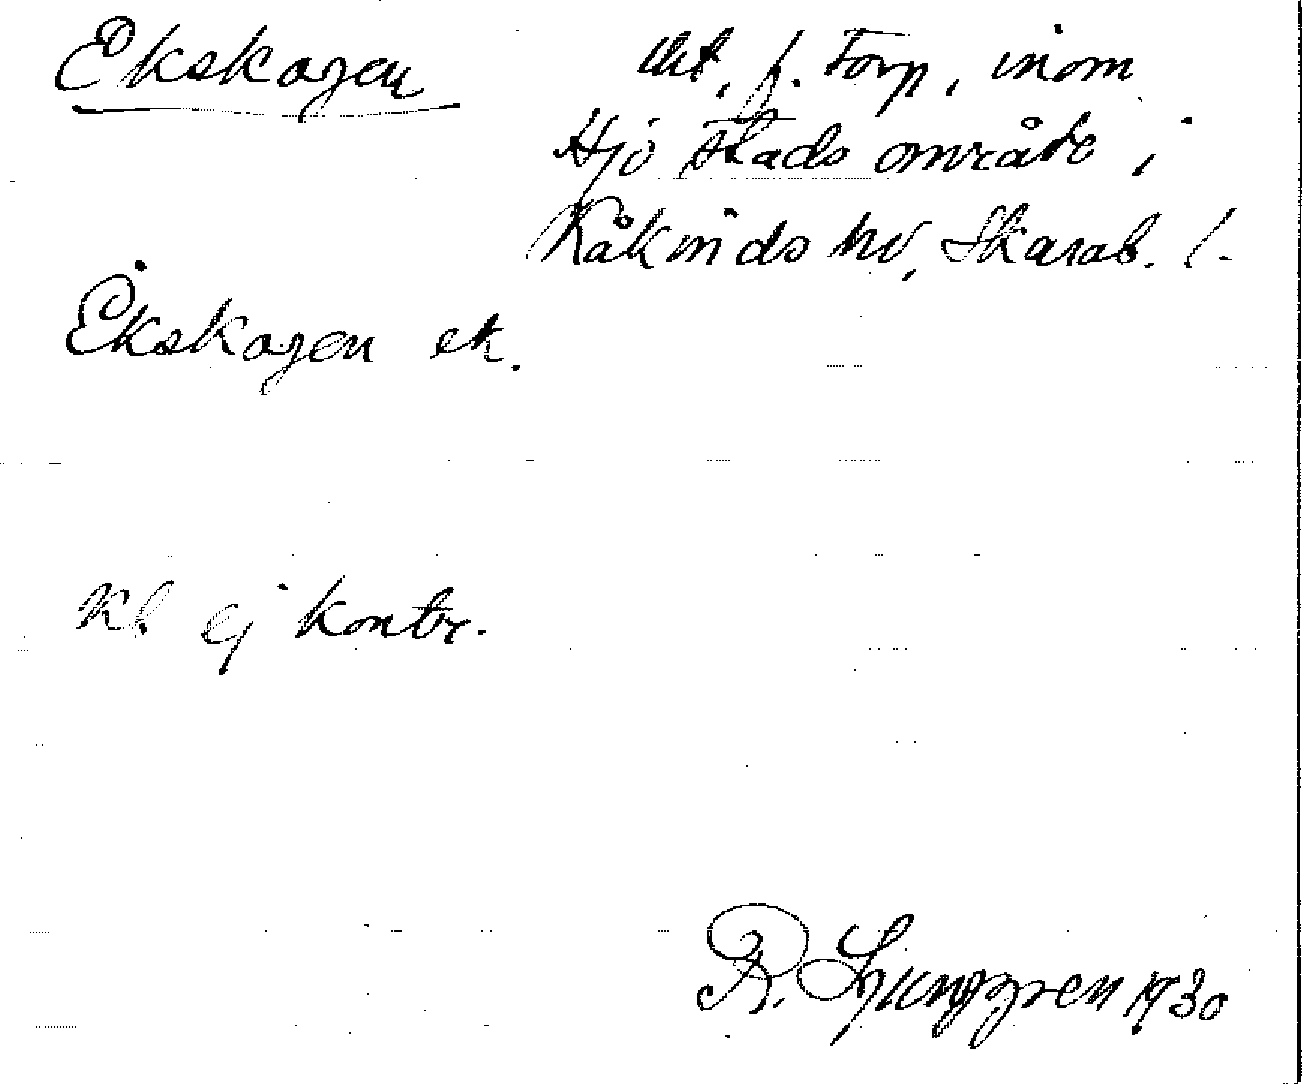 Ekskogen
utj. f. Torp, inom
Hjo stads område i
Kåkinds hd, Skarab. l.
Ekskogen ek.
Kl. ej kontr.
R. Ljunggren 1930